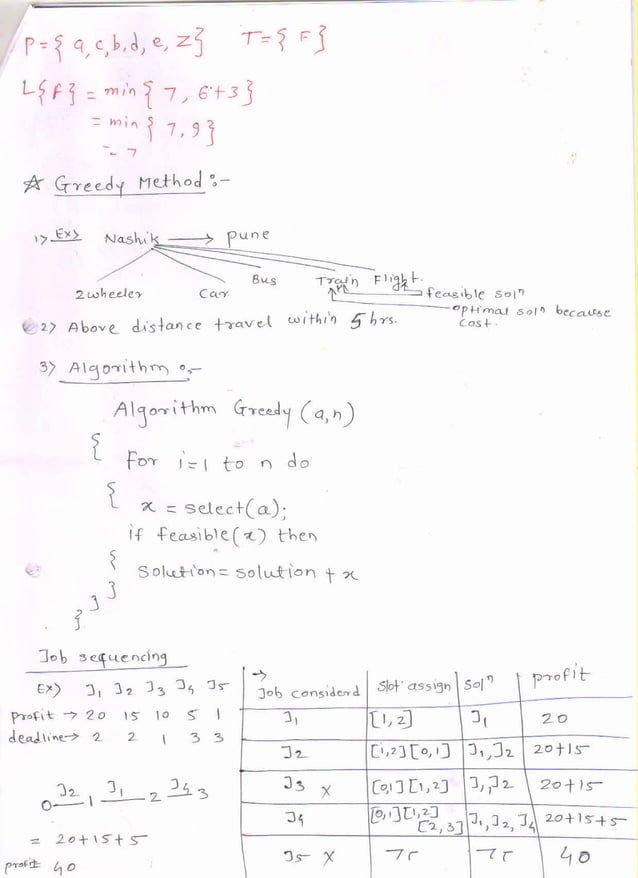 P={ a, c, b, d, e, Z} T={ F}
L{F} = min { 7, 6+3}
= min { 7, 9}
= 7
☆ Greedy Method :-
1> Ex> Nashik → Pune
2 wheeler Car Bus Train Flight.
feasible solⁿ
optimal solⁿ because cost.
2> Above distance travel within 5 hrs.
3> Algorithm :-
Algorithm Greedy (a,n)
{ For i=1 to n do
{ x = select(a);
if feasible(x) then
{ Solution = solution + x
}
}
}
Job sequencing
Ex> J1 J2 J3 J4 J5
profit → 20 15 10 5 1
deadline → 2 2 1 3 3
0 J2 1 J1 2 J4 3
= 20+15+5
profit 40
→ Job considerd | slot assign | solⁿ | profit
J1 | [1,2] | J1 | 20
J2 | [1,2][0,1] | J1, J2 | 20+15
J3 x | [0,1][1,2] | J1, J2 | 20+15
J4 | [0,1][1,2][2,3] | J1, J2, J4 | 20+15+5
J5 x | 40